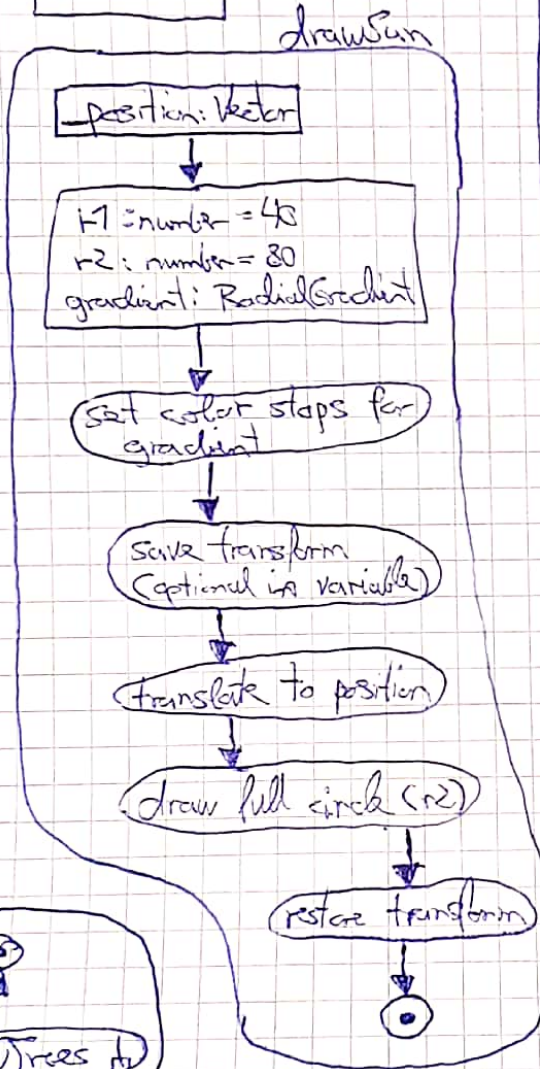 drawSun
_position: Vector
r1: number = 40
r2: number = 80
gradient: RadialGradient
set color stops for
gradient
save transform
(optional in variable)
translate to position
draw full circle (r2)
restore transform
Trees